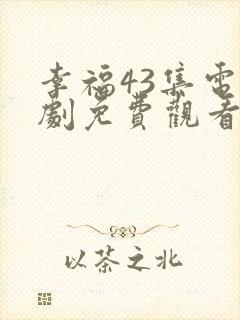 幸福43集電
劇免費觀看
以茶之北